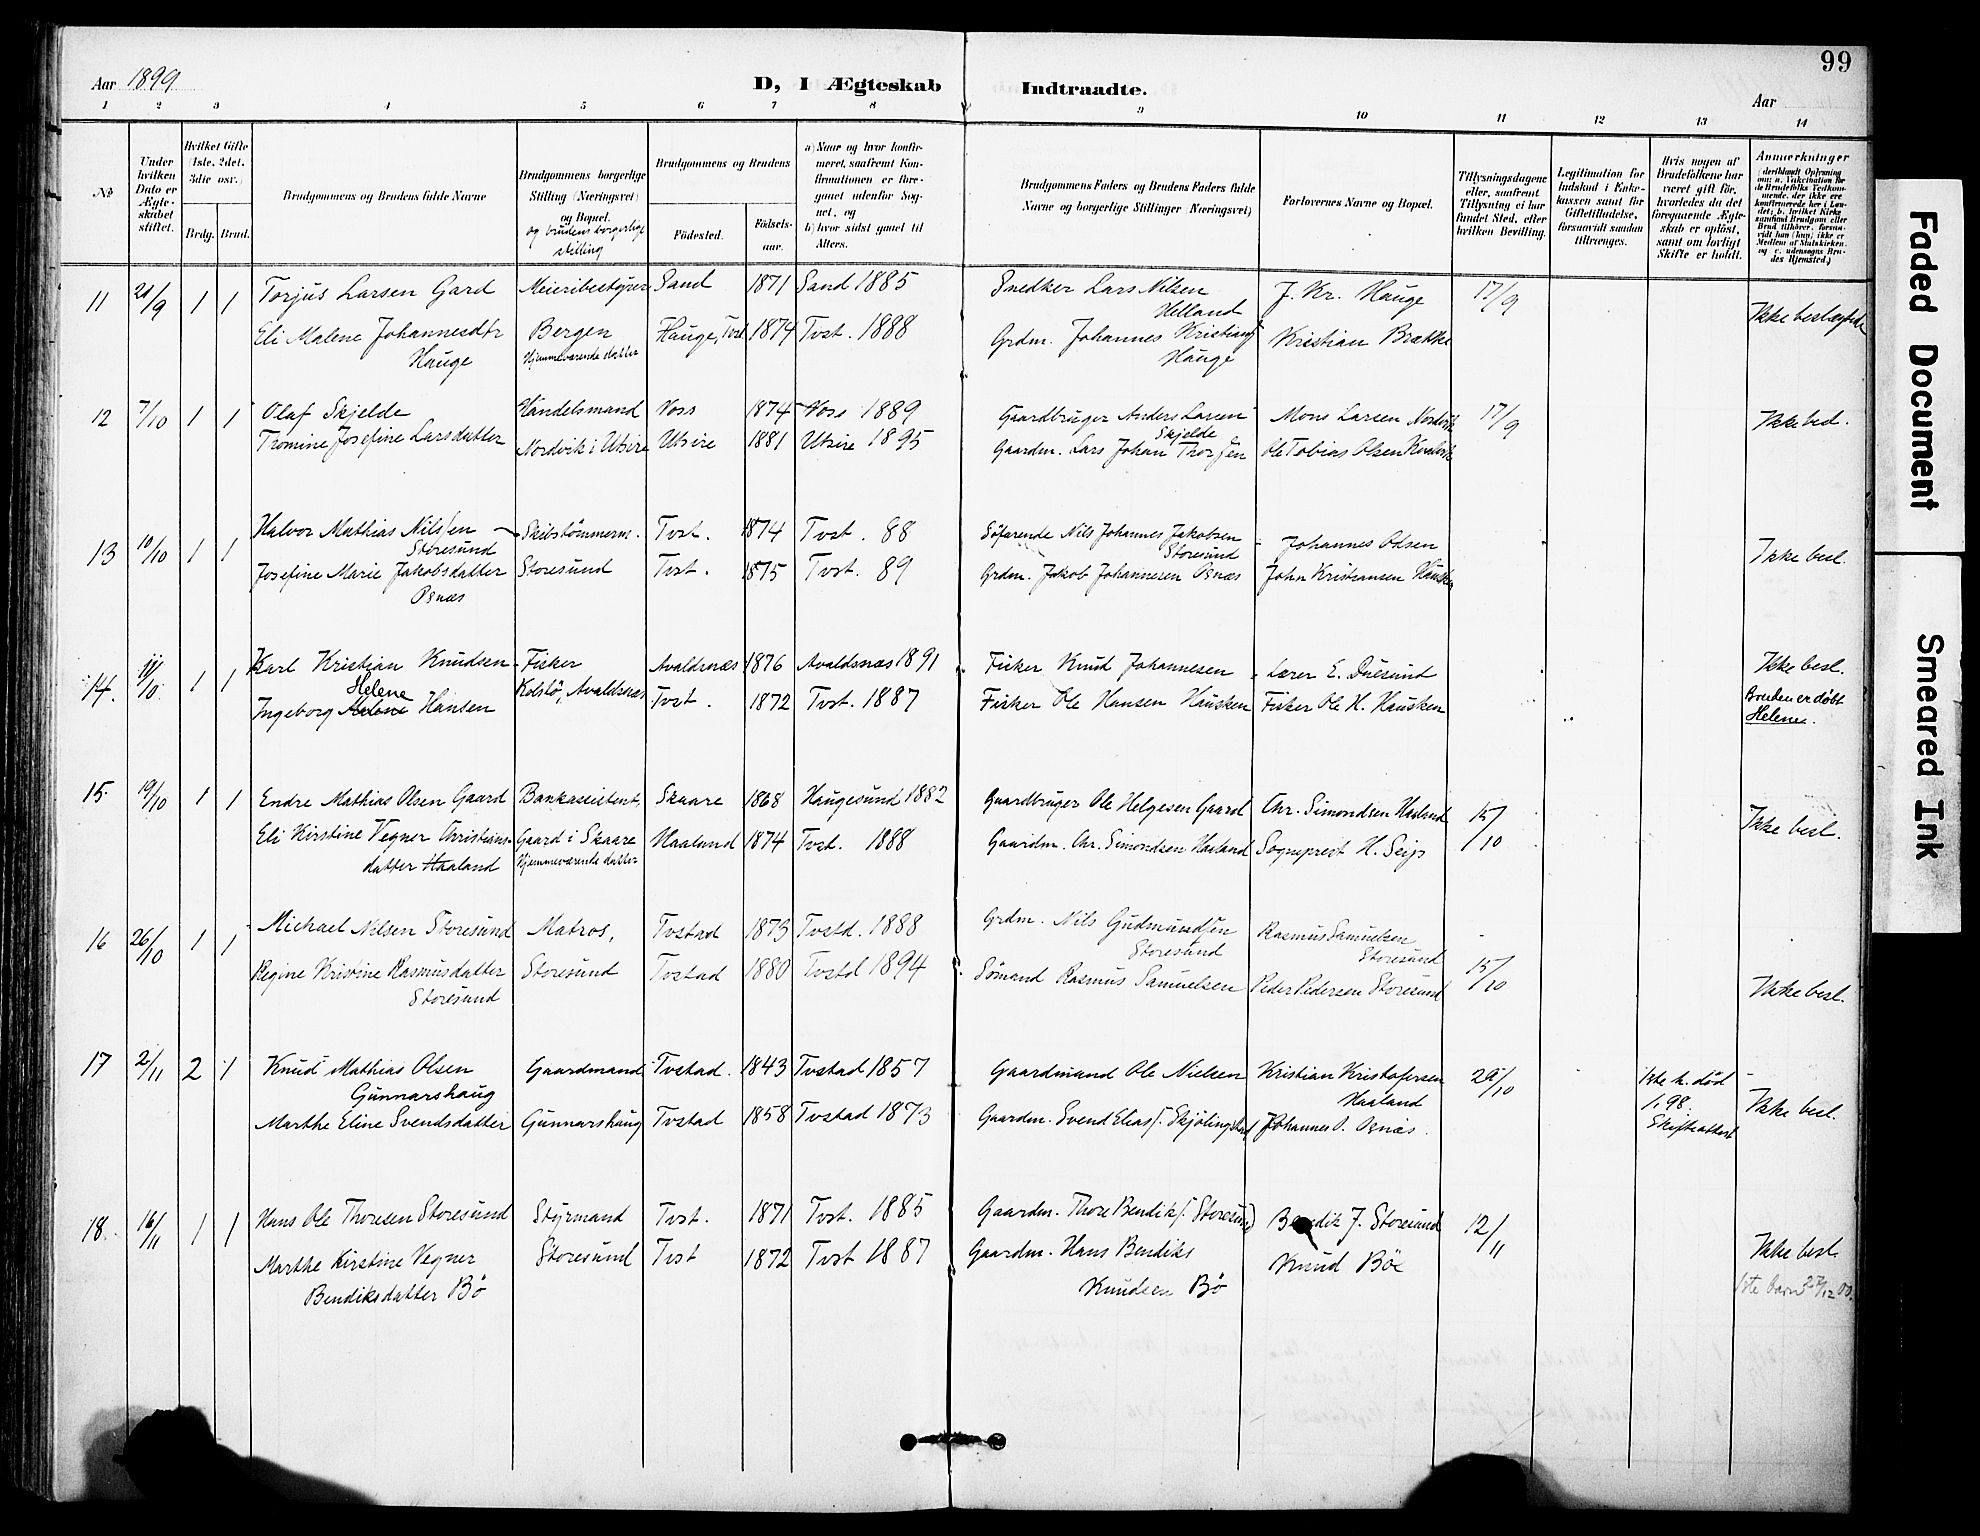 99
Aar 1899
D, I Ægteskab Indtraadte.
Aar
1 2 3 4 5 6 7 8 9 10 11 12 13 14
No
Under hvilken Dato er Ægteskabet stiftet.
Hvilket Gifte (1ste, 2det, 3die osv.)
Brdg. Brud.
Brudgommens og Brudens fulde Navne
Brudgommens borgerlige Stilling (Næringsvei) og Bopæl.
og brudens borgerlige stilling
Brudgommens og Brudens
Fødested.
Fødsels-aar.
a) Naar og hvor konfirmeret, saafremt Konfirmationen er foregaaet udenfor Sognet, og
b) hvor sidst gaaet til Alters.
Brudgommens Faders og Brudens Faders fulde Navne og borgerlige Stillinger (Næringsvei)
Forlovernes Navne og Bopæl.
Tillysningsdagene eller, saafremt Tillysning ei har fundet Sted, efter hvilken Bevilling.
Legitimation for Indskud i Enkekassen samt for Giftetilladelse, forsaavidt saadan tiltrænges.
Hvis nogen af Brudefolkene har været gift før, hvorledes da det foregaaende Ægteskab er opløst, samt om lovligt Skifte er holdt.
Anmerkninger (deriblandt Oplysning om: a. Vakcination for de Brudefolks Vedkommende, der ikke ere konfirmerede her i Landet; b. hvilket Kirkesamfund Brudgom eller Brud tilhører, forsaavidt han (hun) ikke er Medlem af Statskirken, og c. udensogns Brudes Hjemsted.)
11 21/9 1 1 Torjus Larsen Gard Meieribestyrer Sand 1871 Sand 1885 Snedker Lars Nilsen Helland J. Kr. Hauge 17/9
Eli Malene Johannesdtr Hauge Bergen Hjemmeværende datter Hauge, Tvst 1874 Tvst. 1888 Grdm. Johannes Kristians. Hauge Kristian Brække Ikke beslægtede
12 7/10 1 1 Olaf Skjelde Handelsmand Voss 1874 Voss 1889 Gaardbruger Anders Larsen Skjelde Mons Larsen Nordvik 17/9 Ikke besl.
Tomine Josefine Larsdatter Nordvik i Utsire Utsire 1881 Utsire 1895 Gaardm. Lars Johan Thorsen Ole Tobias Olsen
13 10/10 1 1 Halvor Mathias Nilssen Storesund Skibstømmerm. Tvst. 1874 Tvst. 88 Søfarende Nils Johannes Jakobsen Storesund Johannes Odsen Ikke besl.
Josefine Marie Jakobsdatter Osnæs Storesund Tvst. 1875 Tvst. 89 Grdm. Jakob Johannesen Osnæs John Kristiansen Hausken
14. 11/10 1 1 Karl Kristian Knudsen Fisker Avaldsnæs 1876 Avaldsnæs 1891 Fisker Knud Johannesen Lærer E. Duesund Ikke besl.
Helene
Ingeborg Malene Hansen Kolstø, Avaldsnæs Tvst. 1872 Tvst. 1887 Fisker Ole Hansen Hausken Fisker Ole H. Hausken Bruden er døbt Helene.
15. 19/10 1 1 Endre Mathias Olsen Gaard Bankassistent, Skaare 1868 Haugesund 1882 Gaardbruger Ole Helgesen Gaard Chr. Simondsen Haaland 15/10 Ikke besl.
Eli Kirstine Vegner Christiansdatter Haaland Gaard i Skaare Hjemmeværende datter Haaland 1874 Tvst. 1888 Gaardm. Chr. Simondsen Haaland Sogneprest H. Seip
16 26/10 1 1 Michael Nilsen Storesund Matros, Tvstad 1873 Tvstd. 1888 Grdm. Nils Gudmundsen Storesund Rasmus Samuelsen Storesund
Regine Kristine Rasmusdatter Storesund Storesund Tvstad 1880 Tvstd 1894 Sømand Rasmus Samuelsen Peder Pedersen Storesund 15/10 Ikke besl.
17 2/11 2 1 Knud Mathias Olsen Gunnarshaug Gaardmand Tvstad. 1843 Tvstad 1857 Gaardmand Ole Nielsen Kristian Kristofersen Haaland 29/10 1ste h. død 1. 98. Skifteattest Ikke besl.
Marthe Eline Svendsdatter Gunnarshaug Tvstad 1858 Tvstad 1873 Gaardm. Svend Elias. Skjølingstad Johannes O. Osnæs.
18. 16/11 1 1 Hans Ole Thoresen Storesund Styrmand Tvst. 1871 Tvst. 1885 Gaardm. Thore Bendiks. Storesund Bendik J. Storesund 12/11
Marthe Kirstine Vegner Bendiksdatter Bø Storesund Tvst 1872 Tvst 1887 Gaardm. Hans Bendiks Knudsen Bø Knud Bøe Ikke besl.
1ste barn 27/12 00.
Faded Document
Smeared Ink